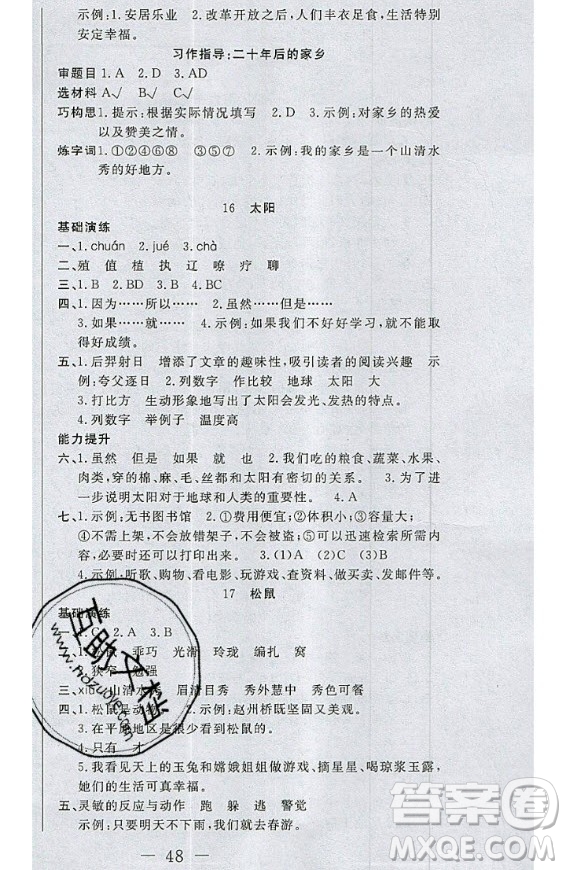 示例:1.安居乐业　2.改革开放后,人们丰衣足食,生活特别
安定幸福。
习作指导:二十年后的家乡
审题目 1.A　2.D　3.AD
选材料 A√　B√
巧构思 1.提示:根据实际情况填写　2.D　3.示例:对家乡的热爱
以及赞美之情。
炼字词 1.①②④⑥⑧　③⑤⑦　2.示例:我的家乡是一个山清水
秀的好地方。
16　太阳
基础演练
一、1.chuán　2.jué　3.chà
二、殖　值　植　执　辽　嘹　疗　聊
三、1.B　2.BD　3.B　4.BC
四、1.因为……所以……　2.虽然……但是……
3.如果……就……　4.示例:如果我们不好好学习,就不能取
得好成绩。
五、1.后羿射日　增添了文章的趣味性,吸引读者的阅读兴趣　示
例:夸父逐日　2.列数字　作比较　地球　太阳　大
3.打比方　生动形象地写出了太阳会发光、发热的特点。
4.列数字　举例子　温度高
能力提升
六、1.虽然　但是　如果　就　也　2.我们吃的粮食、蔬菜、水果、
肉类,穿的棉、麻、毛、丝都和太阳有密切的关系。　3.为了进
一步说明太阳对于地球和人类的重要性。　4.A
七、1.示例:无书图书馆　2.①费用便宜;②体积小;③容量大;
④不需上架,不会放错架子,不会被盗;⑤可迅速检索所需内
容,必要时还可以打印出来。　3.(1)A　(2)C　(3)B
4.示例:听歌、购物、看电影、玩游戏、查资料、做买卖、发邮件等。
17　松鼠
基础演练
一、1.C　2.A　3.B
乖巧　光滑　玲珑　编扎　窝
狭窄　勉强
三、xiù　山清水秀　眉清目秀　秀外慧中　秀色可餐
四、1.松鼠是动物。　2.示例:赵州桥既坚固又美观。
3.在平原地区是很少看到松鼠的。
4.只有　才
5.我看见天上的玉兔和嫦娥姐姐做游戏、摘星星、喝琼浆玉露,
她们的生活可真幸福。
五、灵敏的反应与动作　跑　躲　逃　警觉
示例:只要明天不下雨,我们就去春游。
— 48 —
互助文档
www.hdzuoye.com
答案圈
MXQE.COM